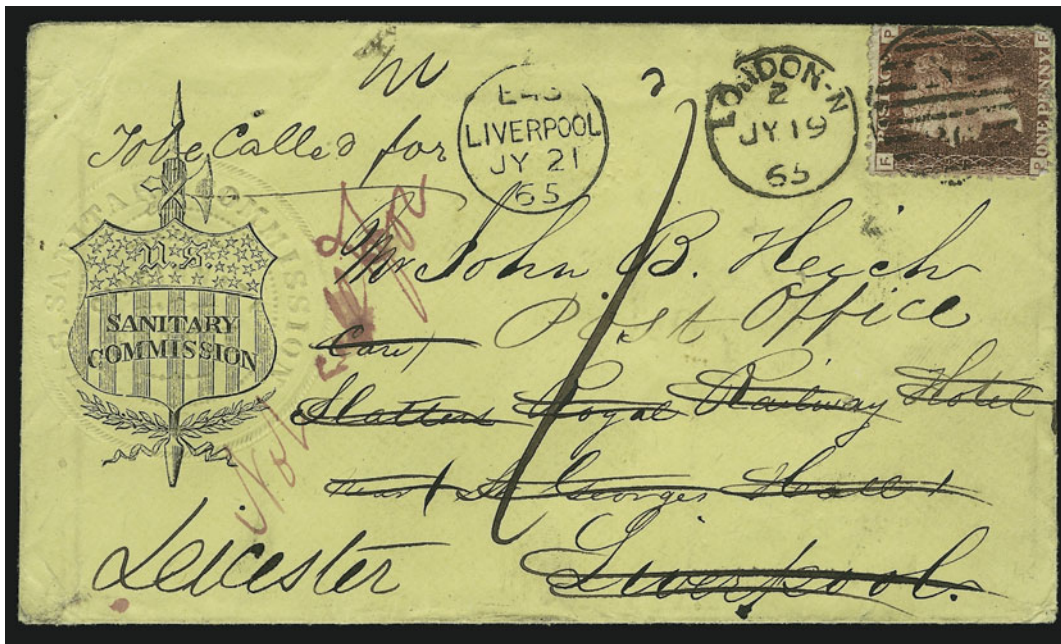 To be Called for
E43
LIVERPOOL
JY 21
65
LONDON-N
Z
JY 19
65
P F
POSTAGE
ONE PENNY
F P
U.S. SANITARY COMMISSION
U.S
SANITARY
COMMISSION
Mr John B. Heich
Post Office
Care
Slatters Royal Railway Hotel
near St Georges Hall
Leicester Liverpool.
Not
1